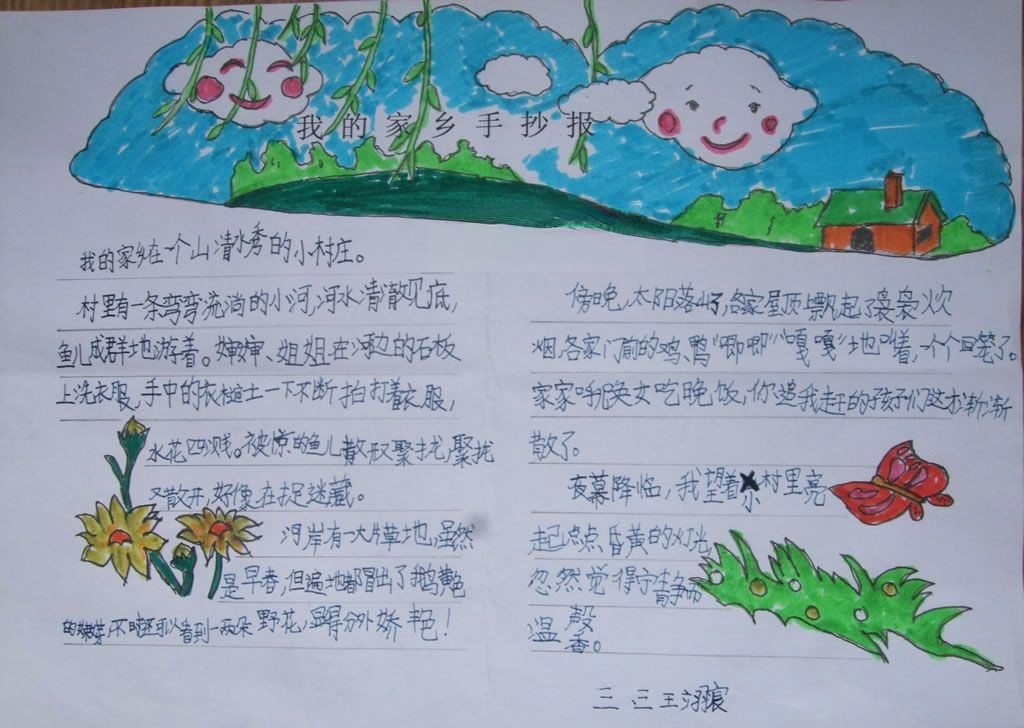 我的家乡手抄报
我的家乡在一个山清水秀的小村庄。
村里有一条弯弯流淌的小河,河水清澈见底,
鱼儿成群地游着。婶婶、姐姐在河边的石板
上洗衣服,手中的衣槌土一下不断拍打着衣服,
水花四溅。被惊的鱼儿散形聚拢,聚拢
又散开,好像在捉迷藏。
河岸有一大片草地,虽然
是早春,但遍地都冒出了鹅黄色
的嫩芽,不时还可以看到一两朵野花,显得分外娇艳!
傍晚,太阳落山了,各家屋顶上飘起了袅袅炊
烟,各家门前的鸡、鸭“唧唧”“嘎嘎”地叫着,一个个回笼了。
家家呼儿唤女吃晚饭,你追我赶的孩子们这才渐渐
散了。
夜幕降临,我望着小村里亮
起点点昏黄的灯光,
忽然觉得宁静而
温馨。
三 三 王